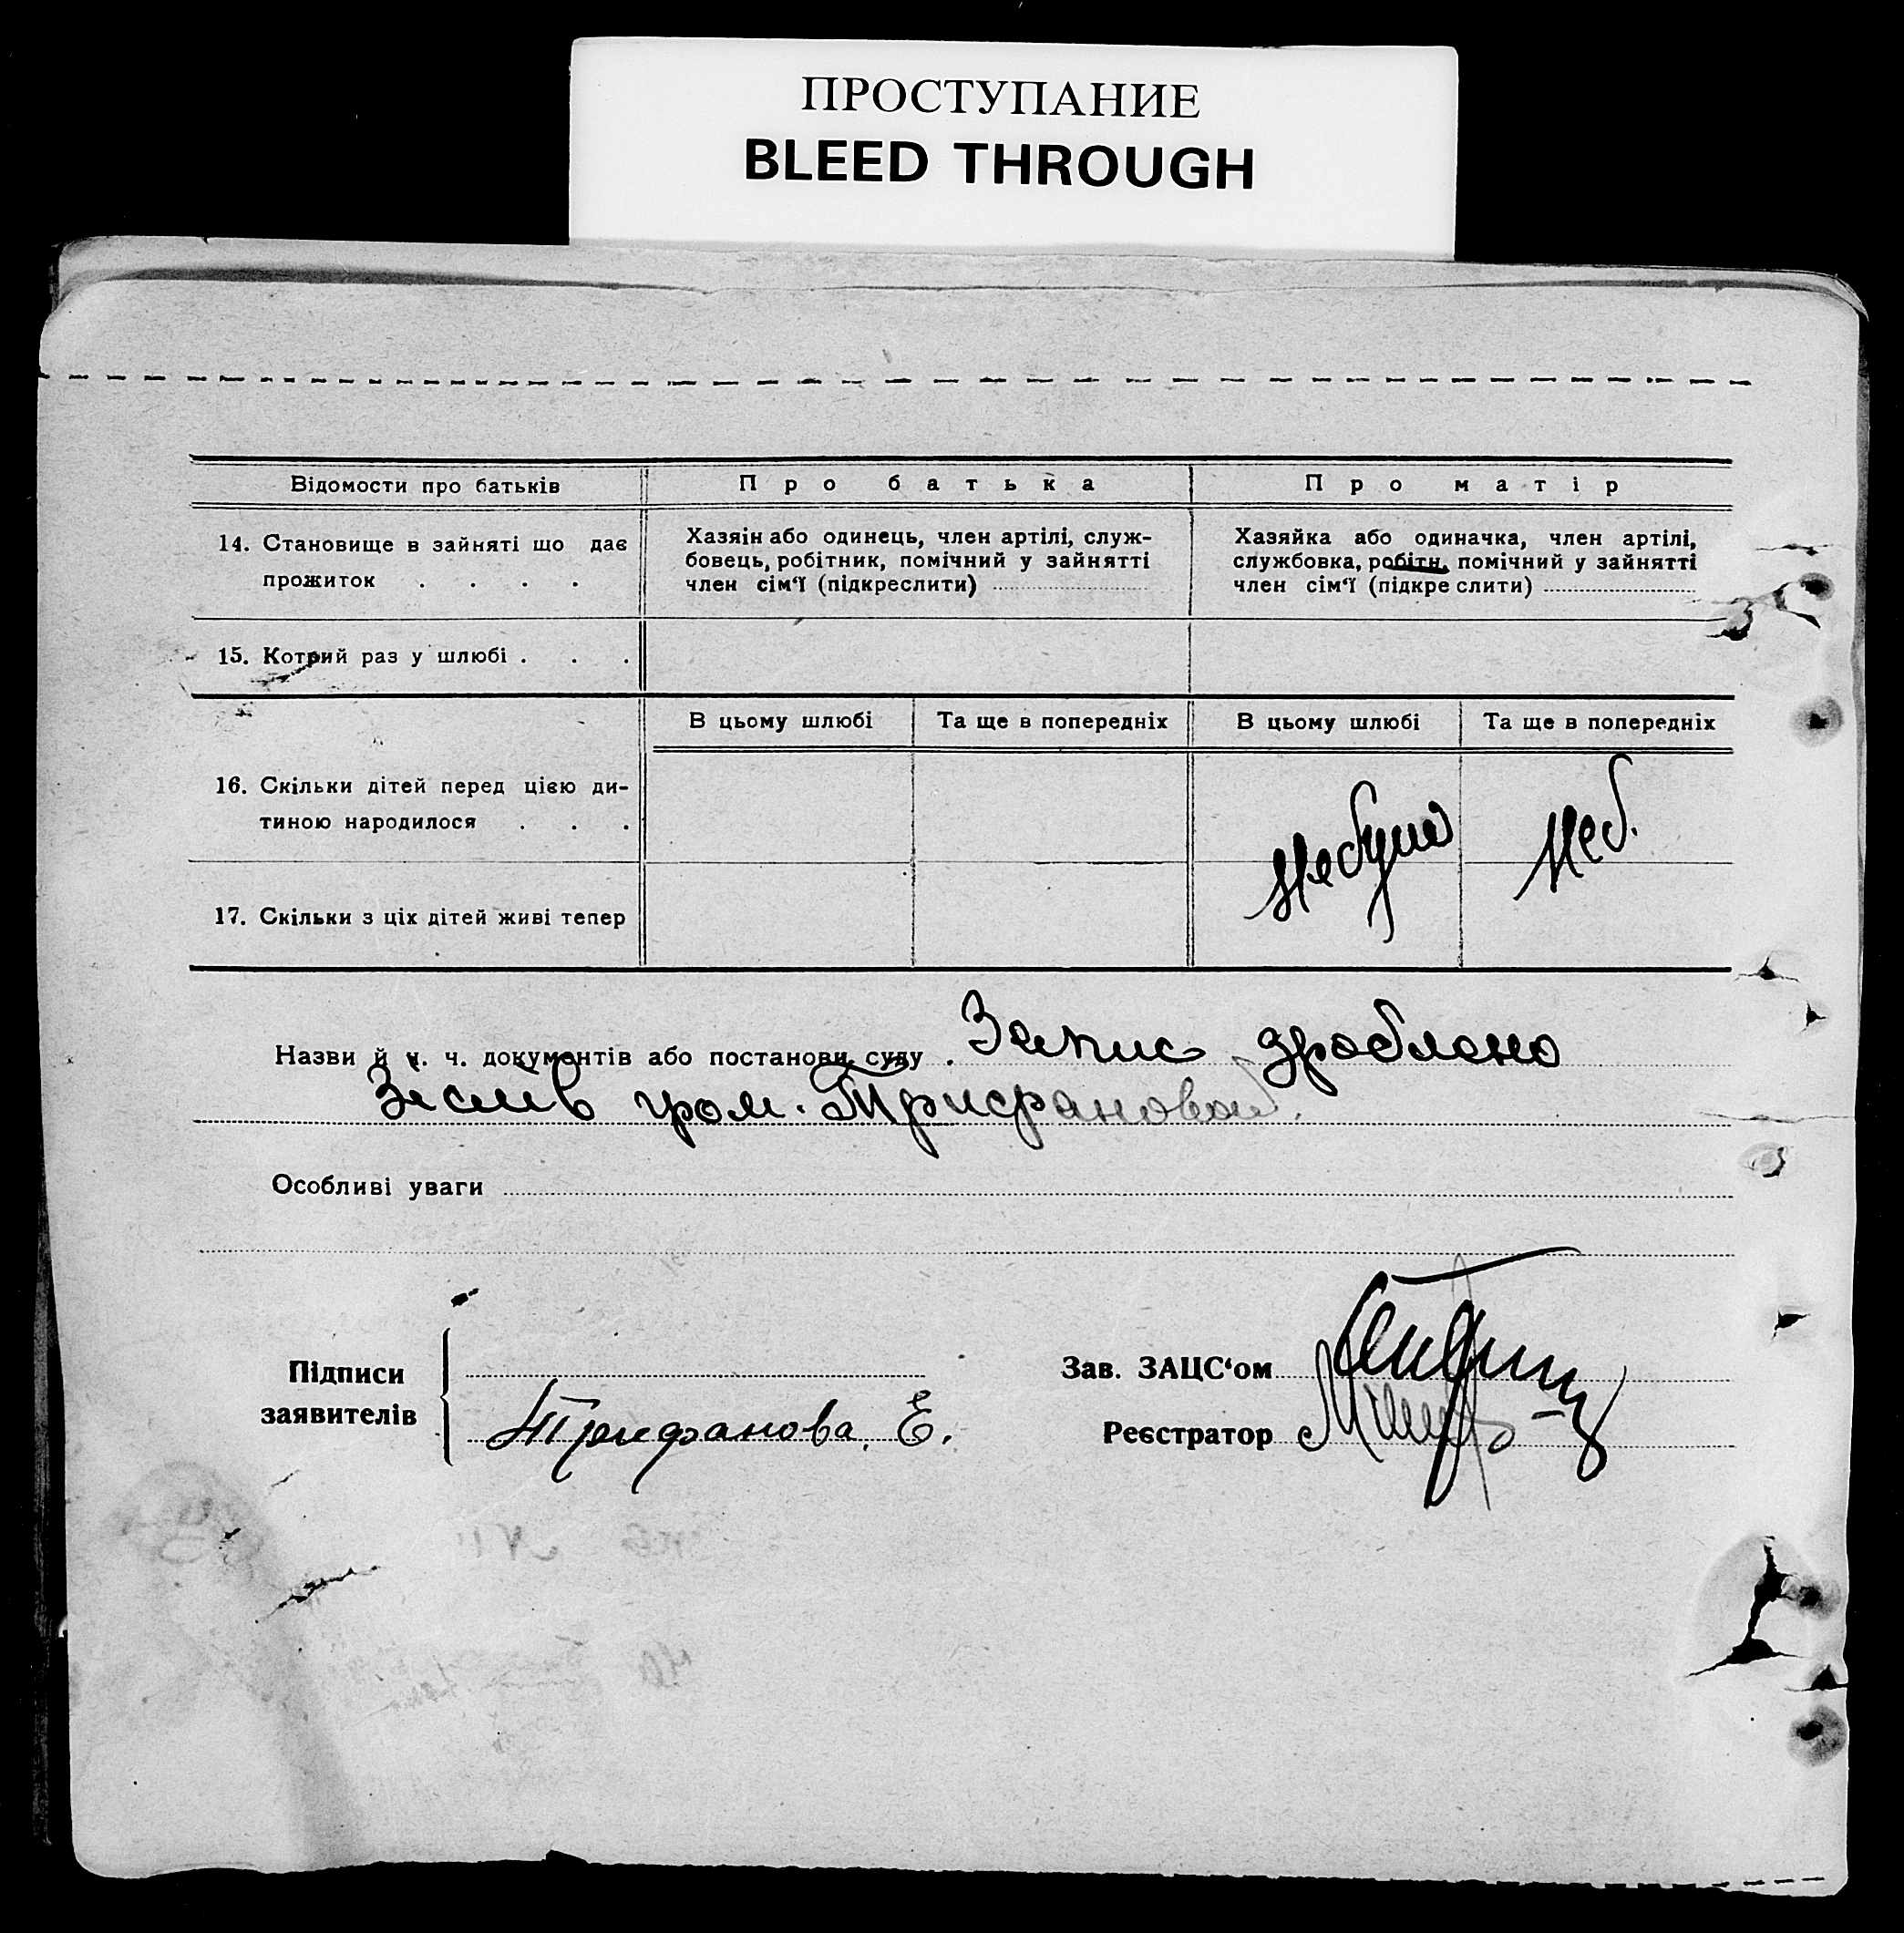 ПРОСТУПАНИЕ
BLEED THROUGH
Відомости про батьків
Про батька
Про матір
14. Становище в зайняті що дає
прожиток . . . .
Хазяїн або одинець, член артілі, служ-
бовець, робітник, помічний у зайнятті
член сім‘ї (підкреслити)
Хазяйка або одиначка, член артілі,
службовка, робітн. помічний у зайнятті
член сім‘ї (підкреслити)
15. Котрий раз у шлюбі . . .
В цьому шлюбі
Та ще в попередніх
В цьому шлюбі
Та ще в попередніх
16. Скільки дітей перед цією ди-
тиною народилося . . .
Небуло
Неб.
17. Скільки з ціх дітей живі тепер
Назви й ч. ч. документів або постанови суду . Запис зроблено
гром. Трифановой.
Особливі уваги
Підписи
заявителів
Трифанова, Е.
Зав. ЗАЦС‘ом
Реєстратор